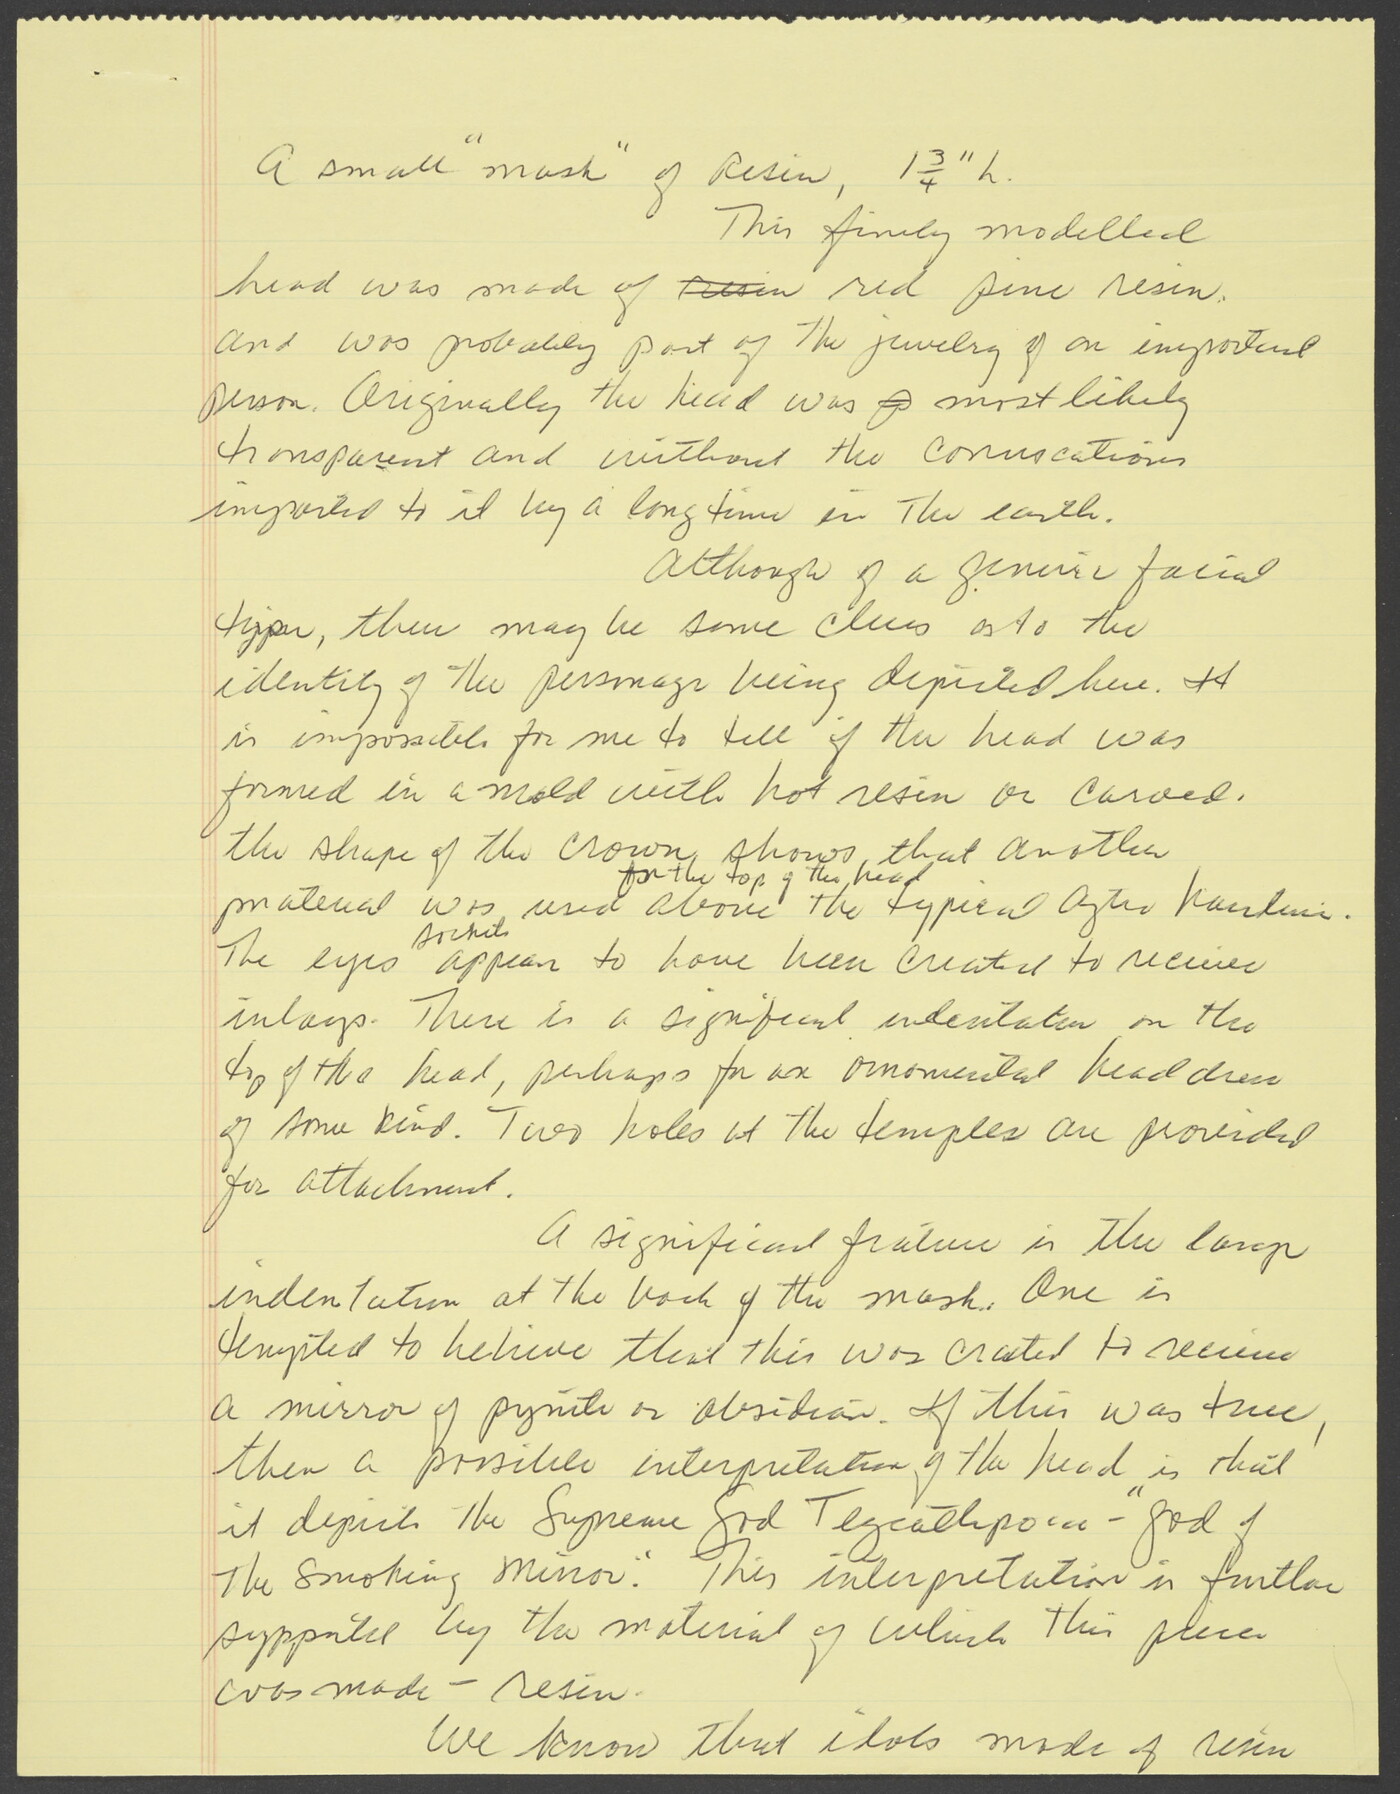 A small "mask" of Resin, 1 3/4" h.
This finely modelled
head was made of resin red pine resin.
and was probably part of the jewelry of an important
person. Originally the head was most likely
transparent and without the coruscations
imparted to it by a long time in the earth.
Although of a generic facial
type, there may be some clues as to the
identity of the personage being depicted here. It
is impossible for me to tell if the head was
formed in a mold with hot resin or carved.
the shape of the crown shows that another
for the top of the head
material was used above the typical Aztec hairline.
sockets
The eyes appear to have been created to receive
inlays. There is a significant indentation on the
top of the head, perhaps for an ornamental headdress
of some kind. Two holes at the temples are provided
for attachment.
A significant feature is the large
indentation at the back of the mask. One is
tempted to believe that this was created to receive
a mirror of pyrite or obsidian. If this was true,
then a possible interpretation of the head is that
it depicts the Supreme God Tezcatlipoca - "God of
the Smoking Mirror." This interpretation is further
supported by the material of which this piece
was made - resin.
We know that idols made of resin